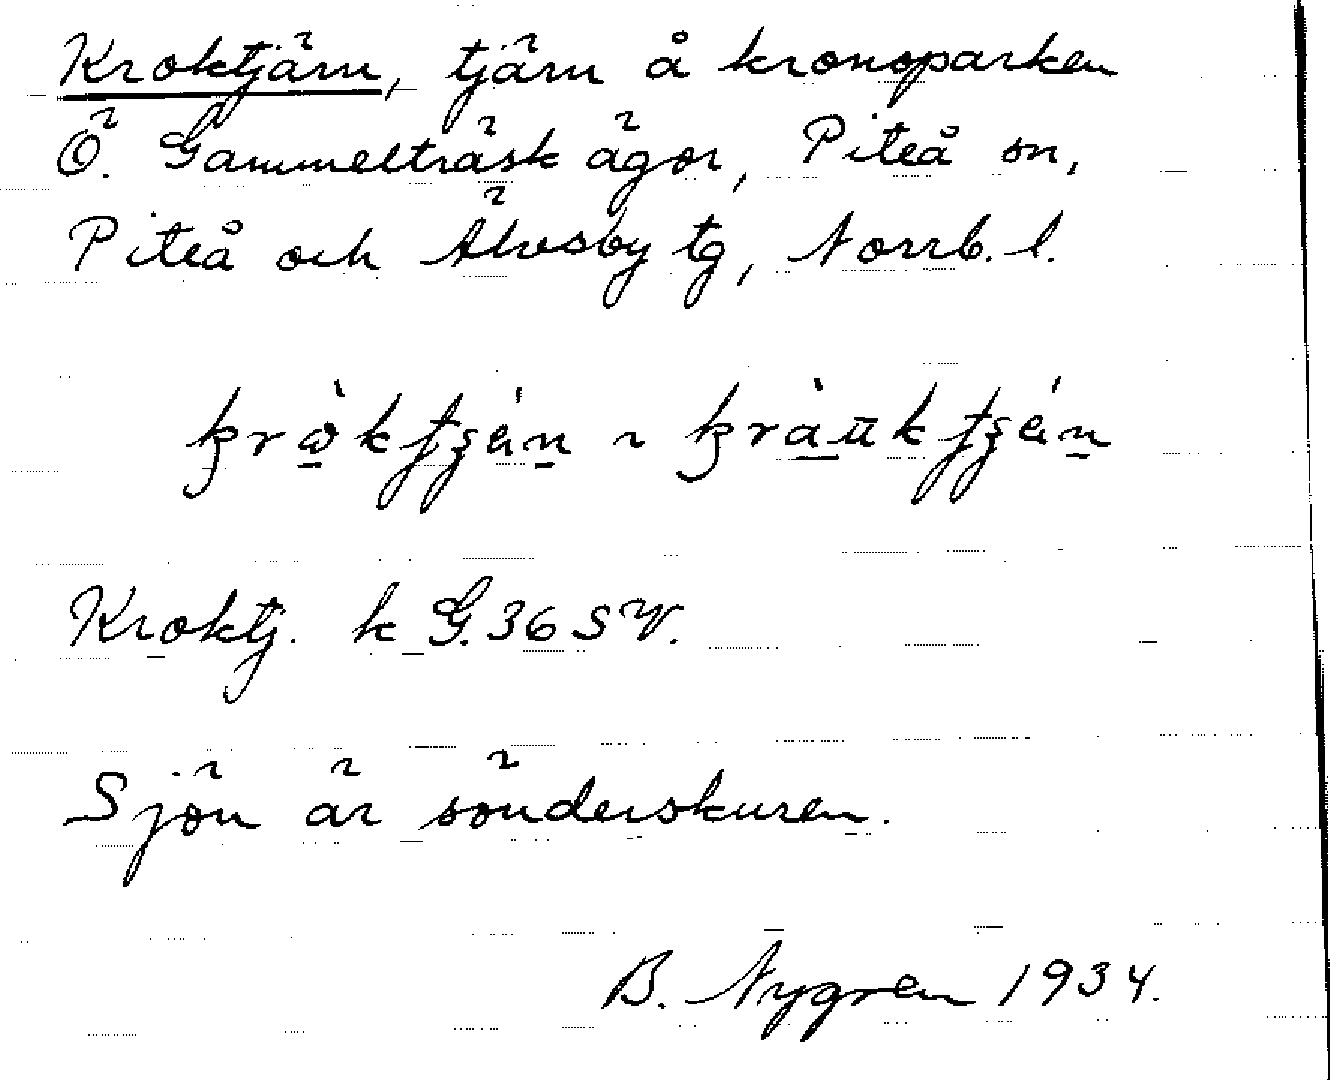 Kroktjärn, tjärn å kronoparken
Ö. Gammelträsk ägor, Piteå sn,
Piteå och Älvsby tg, Norrb. l.
Kroktj. k G. 36 SV.
Sjön är sönderskuren.
B. Nygren 1934.